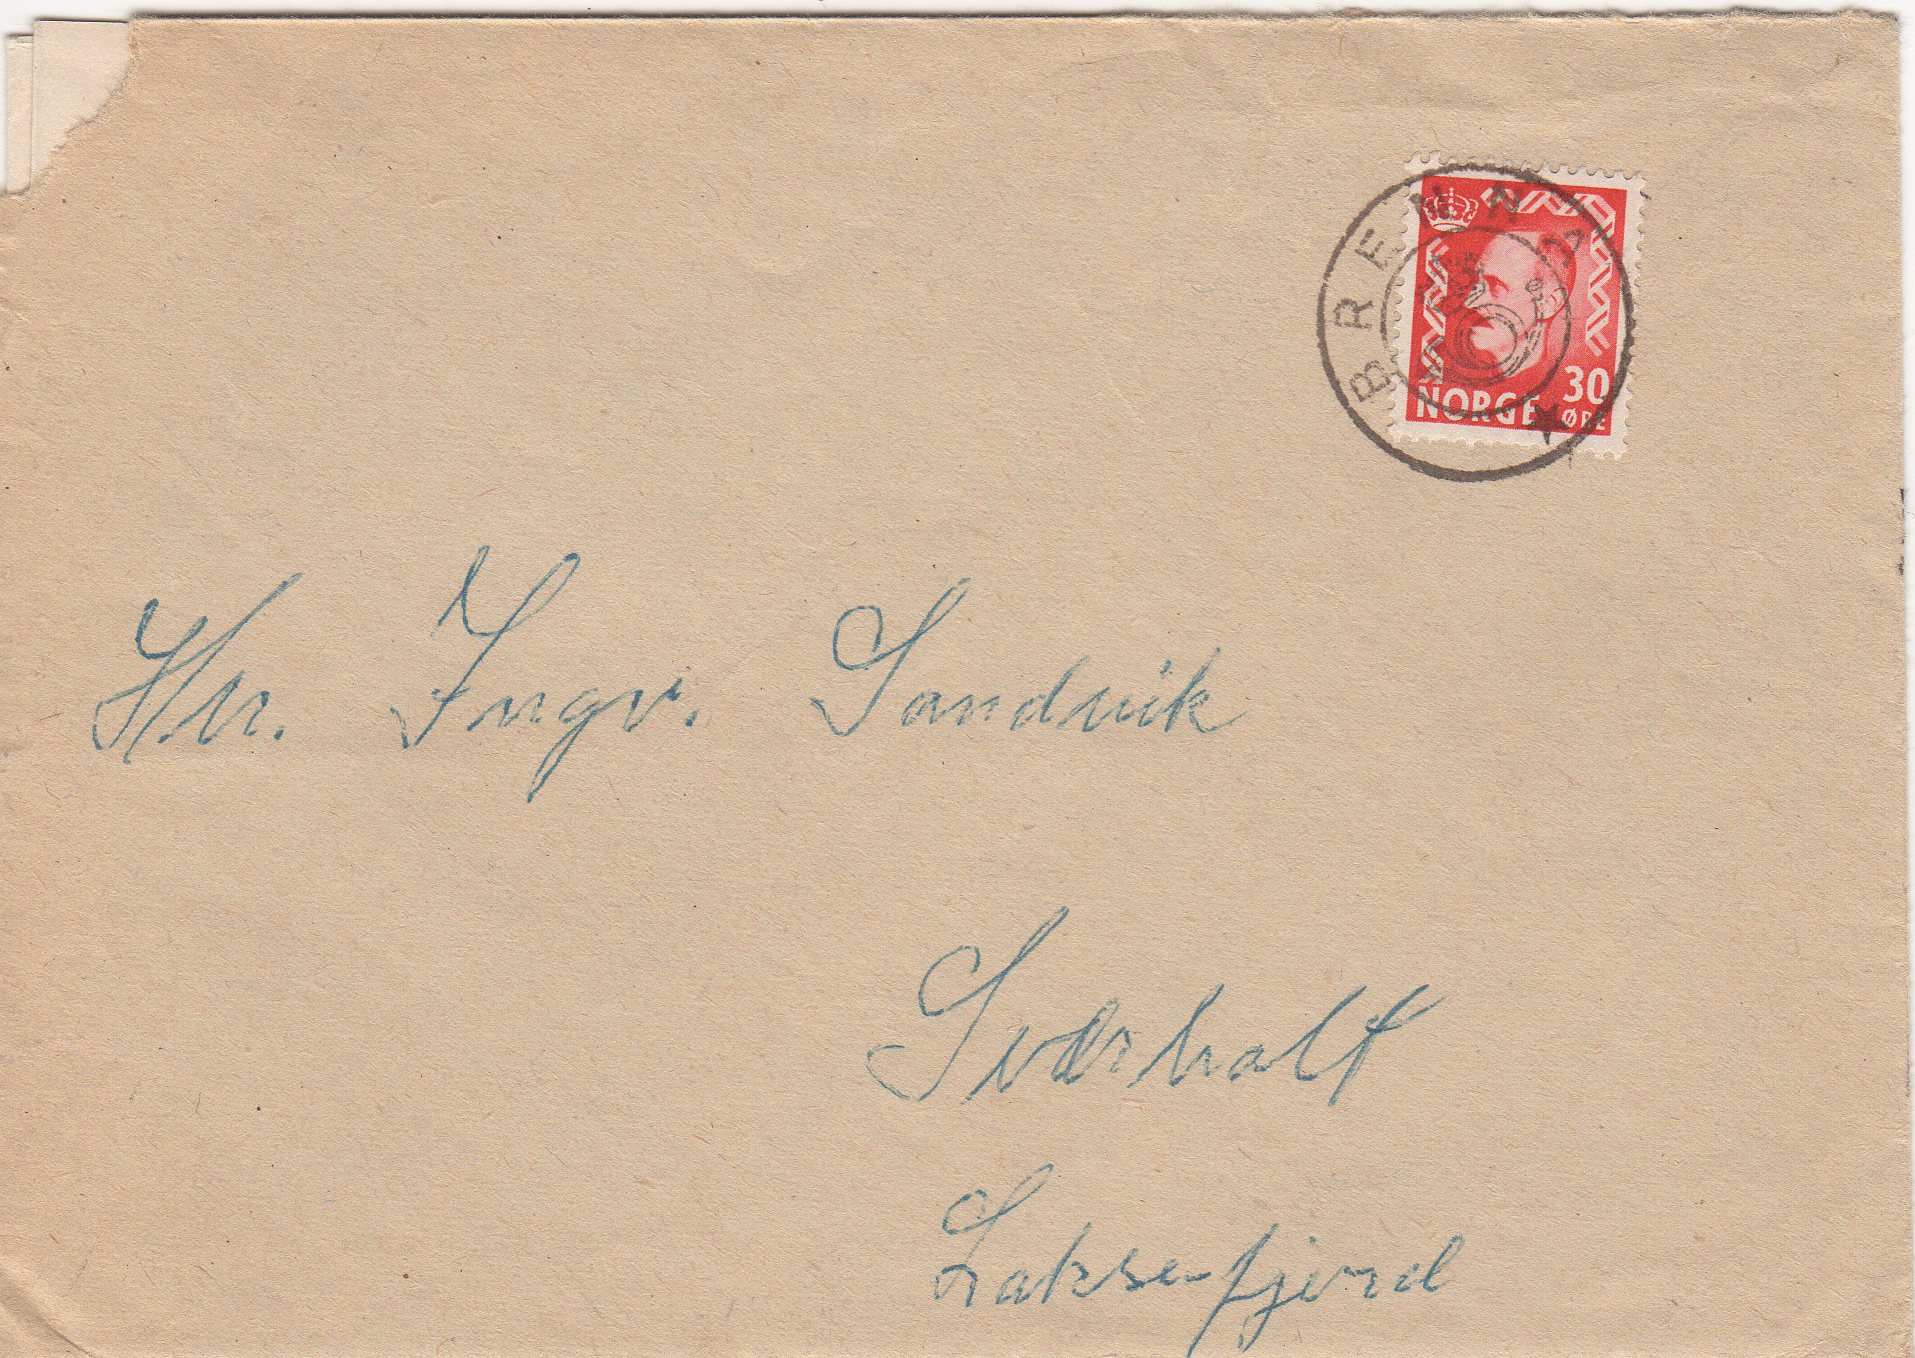 BRENNA
NORGE
30
ØRE
Hr. Ingv. Sandvik
Sværholt
Laksefjord